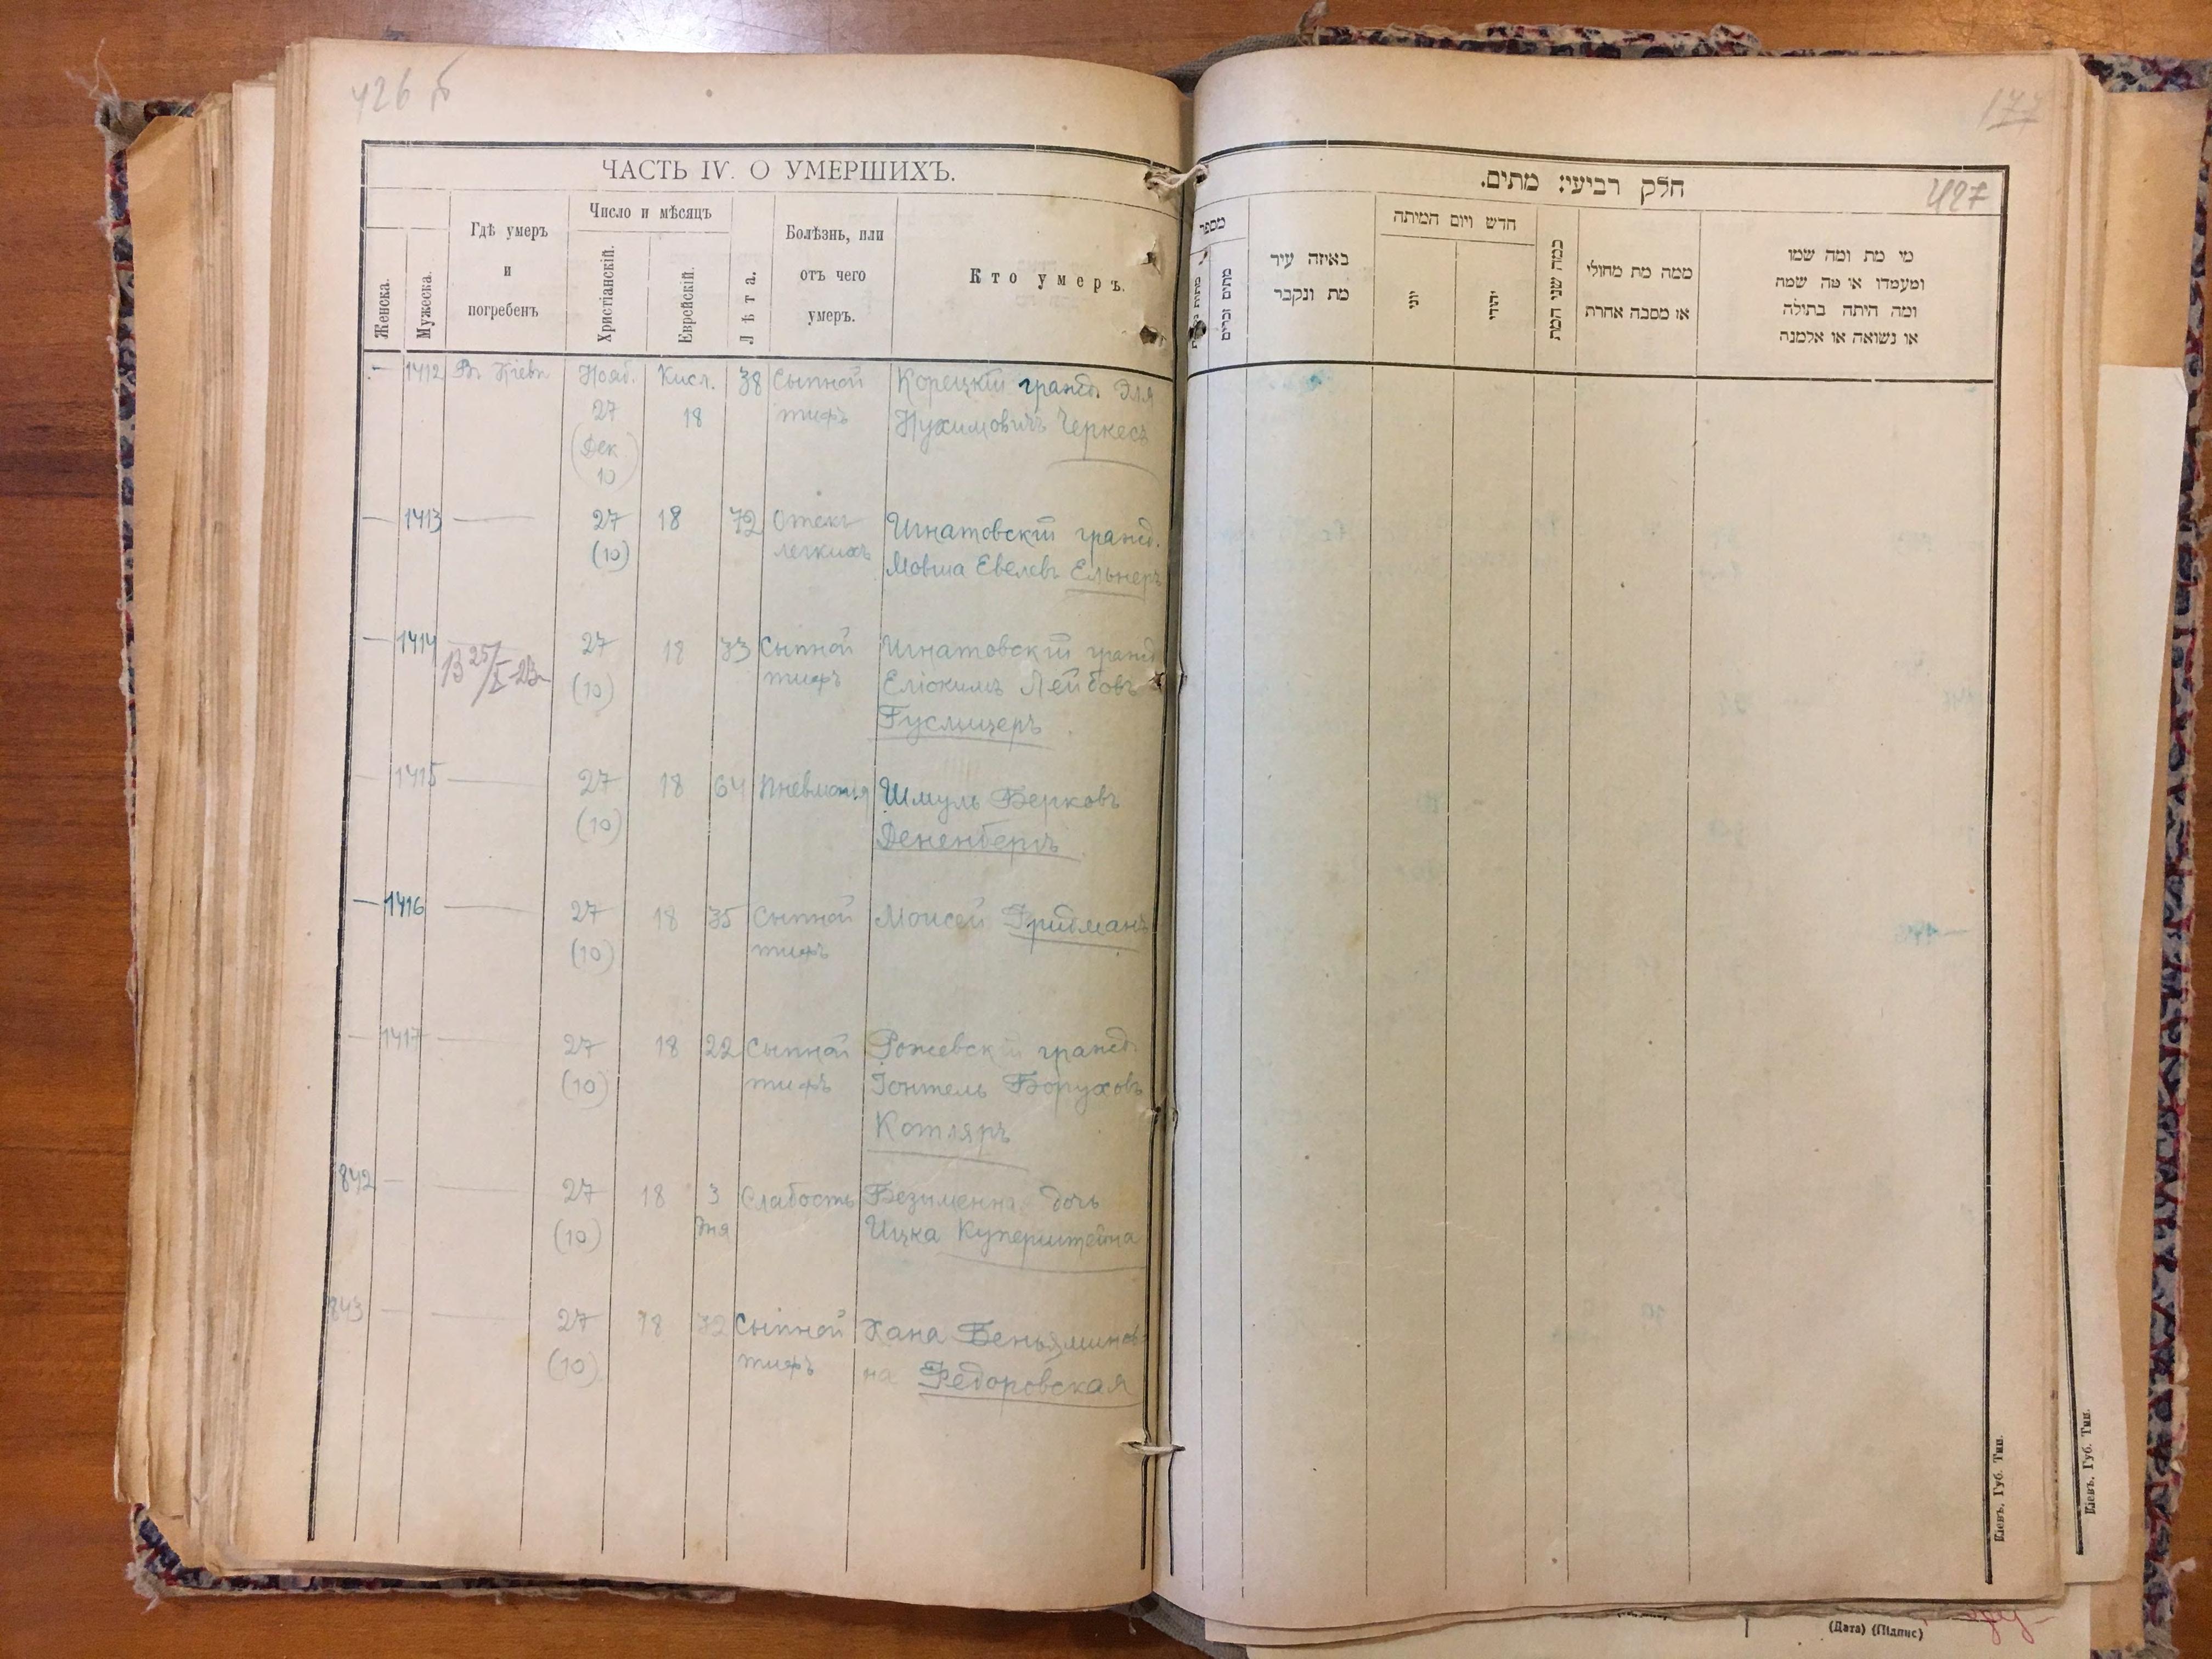 426 б
ЧАСТЬ IV. О УМЕРШИХЪ.
Женска.
Мужеска.
Гдѣ умеръ
и
погребенъ
Число и мѣсяцъ
Христіанскій.
Еврейскій.
Лѣта.
Болѣзнь, или
отъ чего
умеръ.
Кто умеръ.
— 1412 Въ Кіевѣ Нояб. Кисл. 38 Сыпной Корецкій гражд. Эля
27 18 тифъ Нухимовичъ Черкесъ
(Дек.
10)
— 1413 — 27 18 72 Отекъ Игнатовскій гражд.
(10) легкихъ Мовша Евелевъ Ельнеръ
— 1414 27 18 33 Сыпной Игнатовскій гражд.
(10) тифъ Еліокимъ Лейбовъ
Гуслицеръ
— 1415 — 27 18 64 Пневмонія Шмуль Берковъ
(10) Дененбергъ
— 1416 — 27 18 35 Сыпной Моисей Фридманъ
(10) тифъ
— 1417 — 27 18 22 Сыпной Рожевскій гражд.
(10) тифъ Іонтель Боруховъ
Котляръ
842 — — 27 18 3 Слабость Безыменна дочь
(10) дня Ицка Куперштейна
843 — — 27 18 72 Сыпной Хана Беньяминов-
(10) тифъ на Федоровская
177
חלק רביעי: מתים.
427
מספר
מתים זכרים
באיזה עיר
מת ונקבר
חדש ויום המיתה
יוני
יהודי
כמה שני המת
ממה מת מחולי
או מסבה אחרת
מי מת ומה שמו
ומעמדו או מה שמה
ומה היתה בתולה
או נשואה או אלמנה
Кіевъ, Губ. Тип.
Кіевъ, Губ. Тип.
(Дата) (Підпис)